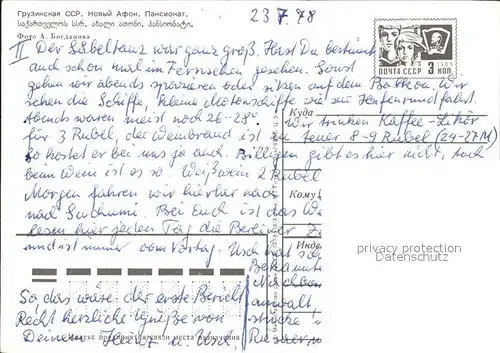 Грузинская ССР. Новый Афон. Пансионат.
საქართველოს სსრ. ახალი ათონი. პანსიონატი.
Фото А. Богданова
23 7. 78
ПОЧТА СССР 3 КОП
1966
II Der S.S. war ganz groß. Hast Du bestimmt
auch schon mal im Fernsehen gesehen. Sonst
gehen wir abends spazieren oder sitzen auf dem Balkon. Wir
sehen die Schiffe, kleine Motorschiffe wie zur Hafenrundfahrt.
Abends waren meist noch 26-28°.
Куда
Wir trinken Kaffee-Likör
für 3 Rubel, der Weinbrand ist zu teuer 8-9 Rubel (24-27M)
so kostet er bei uns ja auch. Billigen gibt es hier nicht. Auch
beim Wein ist es so. Weißwein 2 Rubel
Кому
Morgen fahren wir hierher nach
nach Suchumi. Bei Euch ist das We
lesen hier jeden Tag die Berliner Z
und ist immer vom Vortag. Usch hat sch
Индек
Bekannte
Nachbar
anwalt,
stücke
Russer
So, das wäre der erste Bericht
Recht herzliche Grüße von
Deinem Heinz u. Usch.
Индекс предприятия связи места назначения
privacy protection
Datenschutz